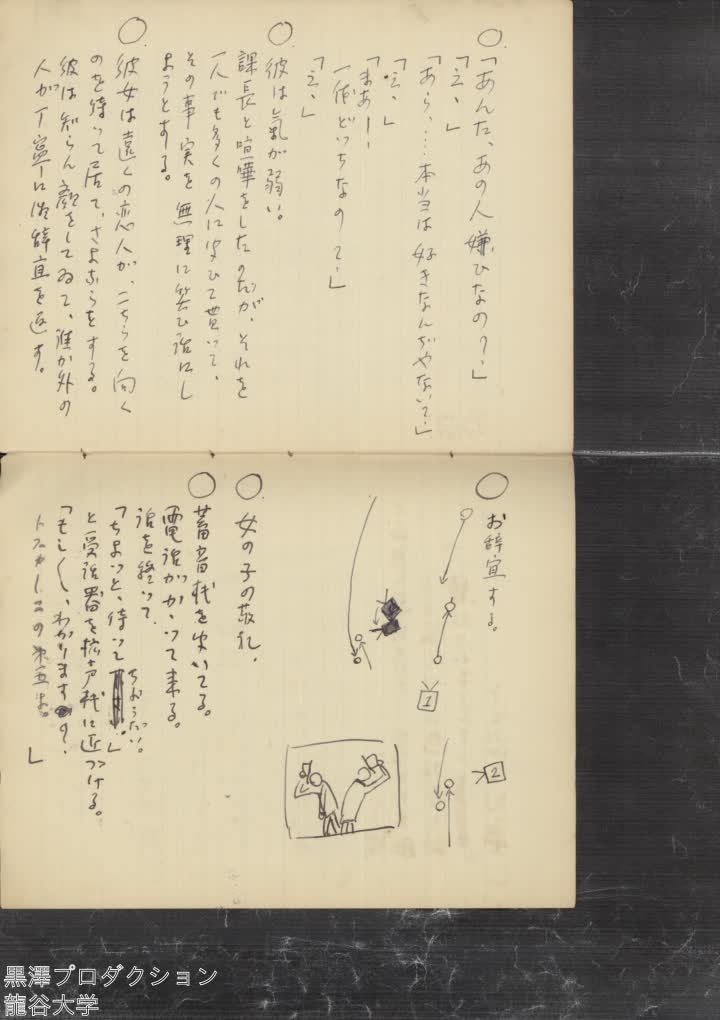 ○
「あんた、あの人嫌ひなの?」
「えゝ」
「あら、…本当は好きなんぢやない?」
「えゝ」
「まあ——
一体どっちなの?」
「えゝ」
○
彼は気が弱い。
課長と喧嘩をしたのだが、それを
一人でも多くの人に笑ひて貰って、
その事実を無理に笑ひ話にし
ようとする。
○
彼女は遠くの恋人が、こちらを向く
のを待って居て、さよならをする。
彼は知らん顔をしてゐて、誰か外の
人が丁寧に御辞宜を返す。
○
お辞宜する。
1
2
○
女の子の敬礼。
○
蓄音機を聞いてる。
電話がかゝって来る。
話を終って、
「ちよっと、待って ちようだい。」
と受話器を拡声機に近づける。
「もしもし、わかりますの?
の第五よ。」
黒澤プロダクション
龍谷大学